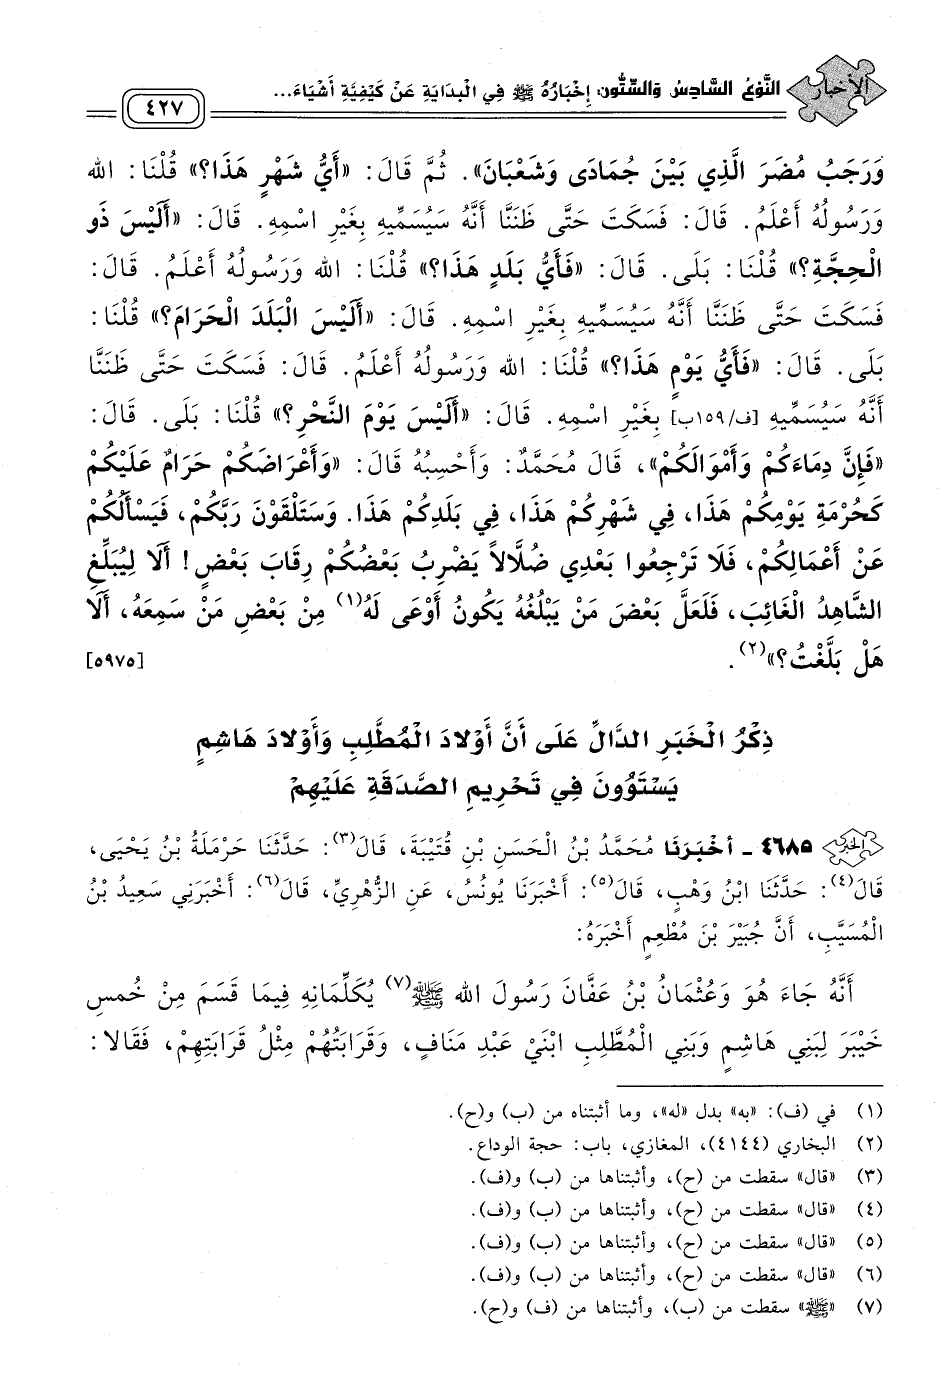 الأخبار
النَّوْعُ السَّادِسُ وَالسِّتُّونَ: إِخْبَارُهُ ﷺ فِي الْبِدَايَةِ عَنْ كَيْفِيَّةِ أَشْيَاءَ...
٤٢٧
وَرَجَبُ مُضَرَ الَّذِي بَيْنَ جُمَادَى وَشَعْبَانَ». ثُمَّ قَالَ: «أَيُّ شَهْرٍ هَذَا؟» قُلْنَا: الله
وَرَسُولُهُ أَعْلَمُ. قَالَ: فَسَكَتَ حَتَّى ظَنَنَّا أَنَّهُ سَيُسَمِّيهِ بِغَيْرِ اسْمِهِ. قَالَ: «أَلَيْسَ ذَو
الْحِجَّةِ؟» قُلْنَا: بَلَى. قَالَ: «فَأَيُّ بَلَدٍ هَذَا؟» قُلْنَا: الله وَرَسُولُهُ أَعْلَمُ. قَالَ:
فَسَكَتَ حَتَّى ظَنَنَّا أَنَّهُ سَيُسَمِّيهِ بِغَيْرِ اسْمِهِ. قَالَ: «أَلَيْسَ الْبَلَدَ الْحَرَامَ؟» قُلْنَا:
بَلَى. قَالَ: «فَأَيُّ يَوْمٍ هَذَا؟» قُلْنَا: الله وَرَسُولُهُ أَعْلَمُ. قَالَ: فَسَكَتَ حَتَّى ظَنَنَّا
أَنَّهُ سَيُسَمِّيهِ [ف/١٥٩ب] بِغَيْرِ اسْمِهِ. قَالَ: «أَلَيْسَ يَوْمَ النَّحْرِ؟» قُلْنَا: بَلَى. قَالَ:
«فَإِنَّ دِمَاءَكُمْ وَأَمْوَالَكُمْ»، قَالَ مُحَمَّدٌ: وَأَحْسِبُهُ قَالَ: «وَأَعْرَاضَكُمْ حَرَامٌ عَلَيْكُمْ
كَحُرْمَةِ يَوْمِكُمْ هَذَا، فِي شَهْرِكُمْ هَذَا، فِي بَلَدِكُمْ هَذَا. وَسَتَلْقَوْنَ رَبَّكُمْ، فَيَسْأَلُكُمْ
عَنْ أَعْمَالِكُمْ، فَلَا تَرْجِعُوا بَعْدِي ضُلَّالاً يَضْرِبُ بَعْضُكُمْ رِقَابَ بَعْضٍ! أَلَا لِيُبَلِّغِ
الشَّاهِدُ الْغَائِبَ، فَلَعَلَّ بَعْضَ مَنْ يَبْلُغُهُ يَكُونُ أَوْعَى لَهُ(١) مِنْ بَعْضِ مَنْ سَمِعَهُ، أَلَا
هَلْ بَلَّغْتُ؟»(٢). [٥٩٧٥]
ذِكْرُ الْخَبَرِ الدَّالِّ عَلَى أَنَّ أَوْلَادَ الْمُطَّلِبِ وَأَوْلَادَ هَاشِمٍ
يَسْتَوُونَ فِي تَحْرِيمِ الصَّدَقَةِ عَلَيْهِمْ
٤٦٨٥ - أَخْبَرَنَا مُحَمَّدُ بْنُ الْحَسَنِ بْنِ قُتَيْبَةَ، قَالَ(٣): حَدَّثَنَا حَرْمَلَةُ بْنُ يَحْيَى،
قَالَ(٤): حَدَّثَنَا ابْنُ وَهْبٍ، قَالَ(٥): أَخْبَرَنَا يُونُسُ، عَنِ الزُّهْرِيِّ، قَالَ(٦): أَخْبَرَنِي سَعِيدُ بْنُ
الْمُسَيَّبِ، أَنَّ جُبَيْرَ بْنَ مُطْعِمٍ أَخْبَرَهُ:
أَنَّهُ جَاءَ هُوَ وَعُثْمَانُ بْنُ عَفَّانَ رَسُولَ الله ﷺ(٧) يُكَلِّمَانِهِ فِيمَا قَسَمَ مِنْ خُمُسِ
خَيْبَرَ لِبَنِي هَاشِمٍ وَبَنِي الْمُطَّلِبِ ابْنَيْ عَبْدِ مَنَافٍ، وَقَرَابَتُهُمْ مِثْلُ قَرَابَتِهِمْ، فَقَالَا:
(١) في (ف): «به» بدل «له»، وما أثبتناه من (ب) و(ح).
(٢) البخاري (٤١٤٤)، المغازي، باب: حجة الوداع.
(٣) «قال» سقطت من (ح)، وأثبتناها من (ب) و(ف).
(٤) «قال» سقطت من (ح)، وأثبتناها من (ب) و(ف).
(٥) «قال» سقطت من (ح)، وأثبتناها من (ب) و(ف).
(٦) «قال» سقطت من (ح)، وأثبتناها من (ب) و(ف).
(٧) «ﷺ» سقطت من (ب)، وأثبتناها من (ف) و(ح).